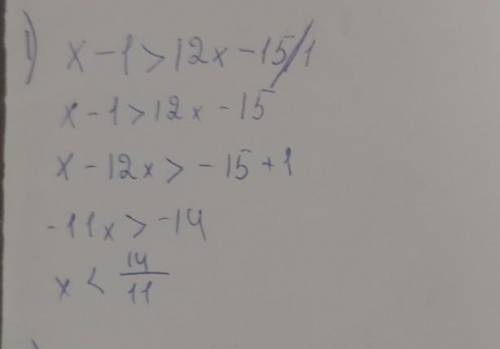 1) x - 1 > 12x - 15/1
x - 1 > 12x - 15
x - 12x > -15 + 1
-11x > -14
x < 14/11